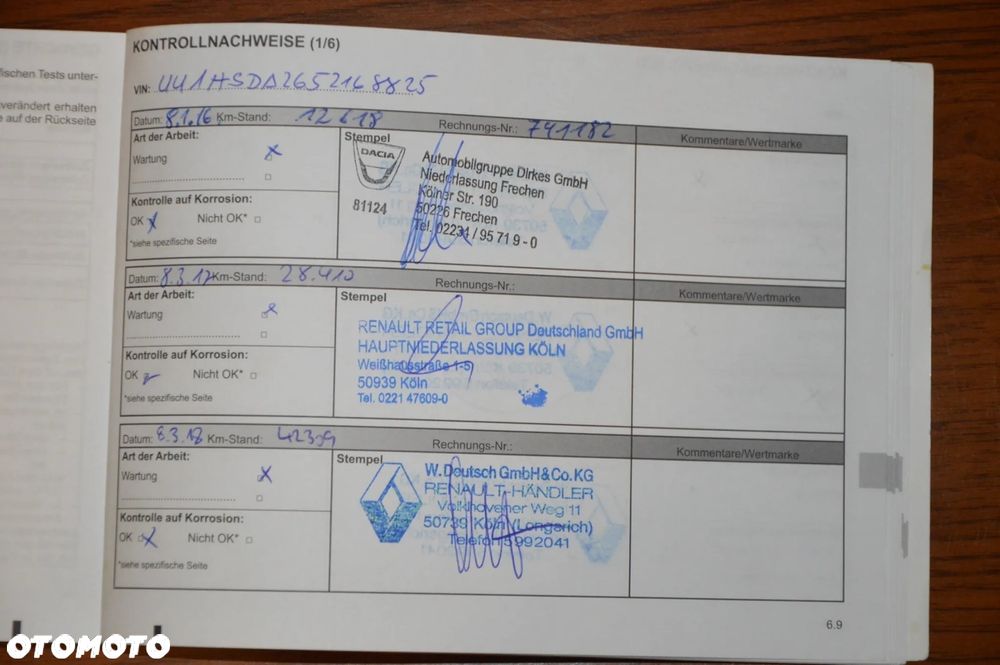 fischen Tests unter-
verändert erhalten
e auf der Rückseite
KONTROLLNACHWEISE (1/6)
VIN: UU1HSDA2652168825
Datum: 8.1.16 Km-Stand: 12618 Rechnungs-Nr.: 741182 Kommentare/Wertmarke
Art der Arbeit:
Wartung x
Kontrolle auf Korrosion:
OK x Nicht OK*
*siehe spezifische Seite
Stempel
DACIA
81124
Automobilgruppe Dirkes GmbH
Niederlassung Frechen
Kölner Str. 190
50226 Frechen
Tel. 02234 / 95 71 9 - 0
Datum: 8.3.17 Km-Stand: 28.410 Rechnungs-Nr.: Kommentare/Wertmarke
Art der Arbeit:
Wartung x
Kontrolle auf Korrosion:
OK Nicht OK*
*siehe spezifische Seite
Stempel
RENAULT RETAIL GROUP Deutschland GmbH
HAUPTNIEDERLASSUNG KÖLN
Weißhausstraße 1-5
50939 Köln
Tel. 0221 47609-0
Datum: 8.3.18 Km-Stand: 42309 Rechnungs-Nr.: Kommentare/Wertmarke
Art der Arbeit:
Wartung x
Kontrolle auf Korrosion:
OK x Nicht OK*
*siehe spezifische Seite
Stempel
W. Deutsch GmbH & Co. KG
RENAULT-HÄNDLER
Volkhovener Weg 11
50739 Köln (Longerich)
Telefon 5992041
6.9
OTOMOTO